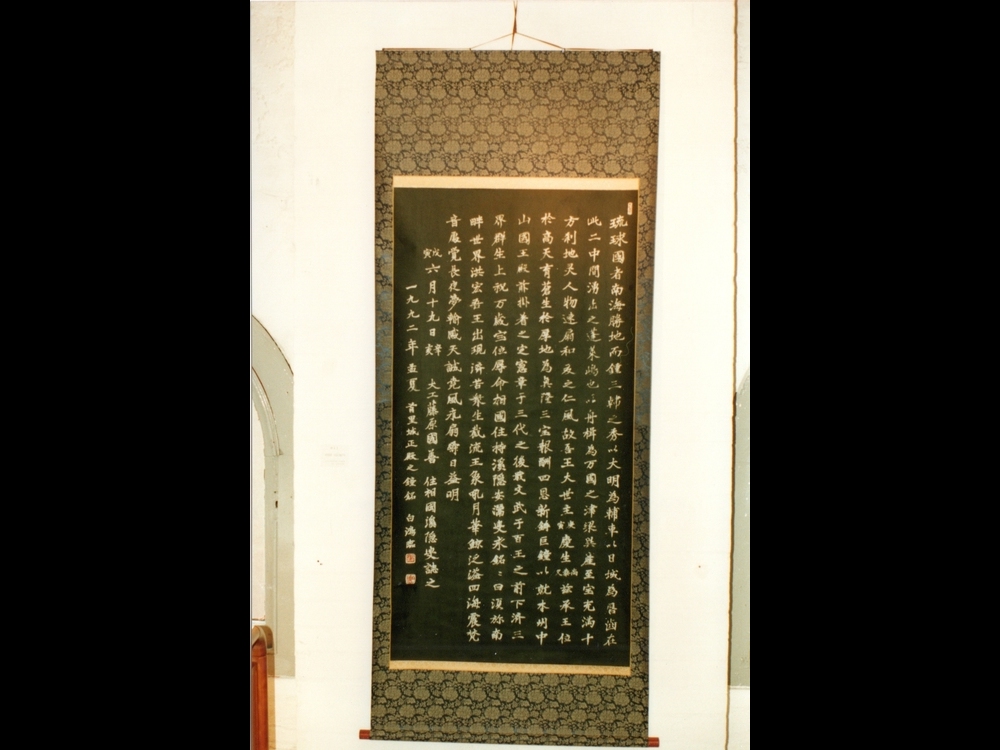 琉球國者南海勝地而鍾三韓之秀以大明為輔車以日域為唇齒在
此二中間湧出之蓬莱嶋也以舟楫為万國之津梁異産至宝充満十
方刹地灵人物遠扇和夏之仁風故吾王大世主庚寅慶生尚泰久茲承王位
於高天育蒼生於厚地為興隆三宝報酬四恩新鋳巨鐘以就本州中
山國王殿前掛着之定憲章于三代之後戢文武于百王之前下済三
界群生上祝万歳宝位辱命相國住持溪隠安潜叟求銘々曰須弥南
畔世界洪宏吾王出現済苦衆生截流玉象吼月華鯨泛溢四海震梵
音震覚長夜夢輸感天誠尭風永扇舜日益明
戊寅六月十九日辛亥 大工藤原國善 住相國溪隠叟誌之
一九九二年孟夏 首里城正殿之鐘銘 白鴻